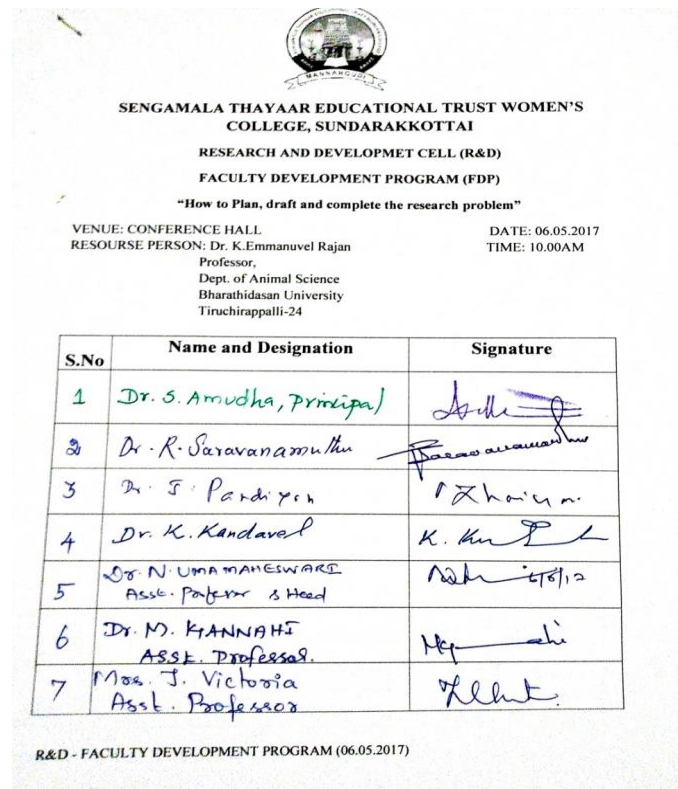 MANNARGUDI
SENGAMALA THAYAAR EDUCATIONAL TRUST WOMEN'S
COLLEGE, SUNDARAKKOTTAI
RESEARCH AND DEVELOPMET CELL (R&D)
FACULTY DEVELOPMENT PROGRAM (FDP)
"How to Plan, draft and complete the research problem"
VENUE: CONFERENCE HALL DATE: 06.05.2017
RESOURSE PERSON: Dr. K.Emmanuvel Rajan TIME: 10.00AM
Professor,
Dept. of Animal Science
Bharathidasan University
Tiruchirappalli-24
S.No Name and Designation Signature
1 Dr. S. Amudha, Principal
2 Dr. R. Saravanamuthu
3 Dr. J. Pandiyan
4 Dr. K. Kandavel K.
5 Dr. N. UMAMAHESWARI
Asst. Professor & Head
6 Dr. M. KANNAHI
ASST. Professor.
7 Mrs. J. Victoria
Asst. Professor
R&D - FACULTY DEVELOPMENT PROGRAM (06.05.2017)